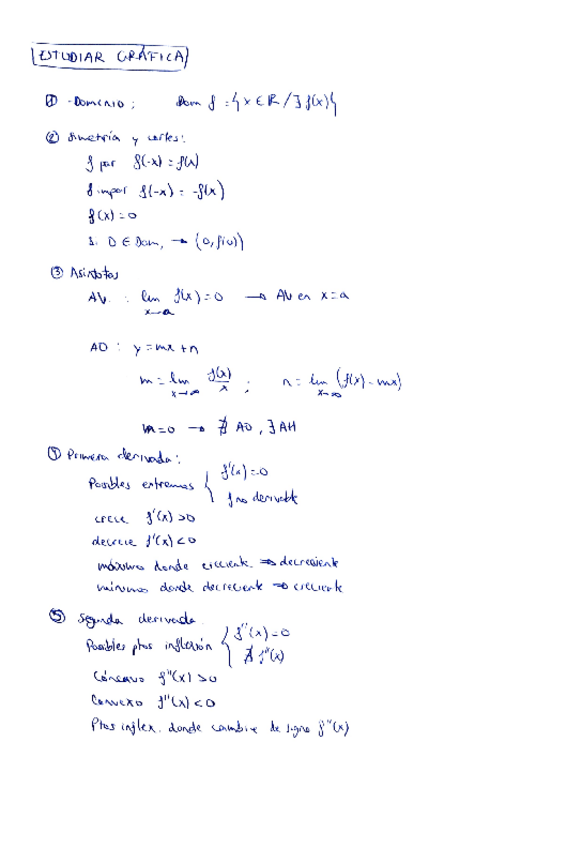 ESTUDIAR GRÁFICA
① -Dominio: Dom f = {x ∈ ℝ / ∃ f(x)}
② Simetría y cortes:
f par f(-x) = f(x)
f impar f(-x) = -f(x)
f(x) = 0
Si 0 ∈ Dom, → (0, f(0))
③ Asíntotas
AV. : lim f(x) = 0 → AV en x = a
x→a
AO : y = mx + n
m = lim f(x)/x ; n = lim (f(x) - mx)
x→∞ x→∞
m = 0 → ∄ AO, ∃ AH
④ Primera derivada:
Posibles extremos { f'(x) = 0
f no derivable
crece f'(x) > 0
decrece f'(x) < 0
máximo donde creciente ⇒ decreciente
mínimo donde decreciente ⇒ creciente
⑤ Segunda derivada
Posibles ptos inflexión { f''(x) = 0
∄ f''(x)
Cóncavo f''(x) > 0
Convexo f''(x) < 0
Ptos inflex. donde cambie de signo f''(x)